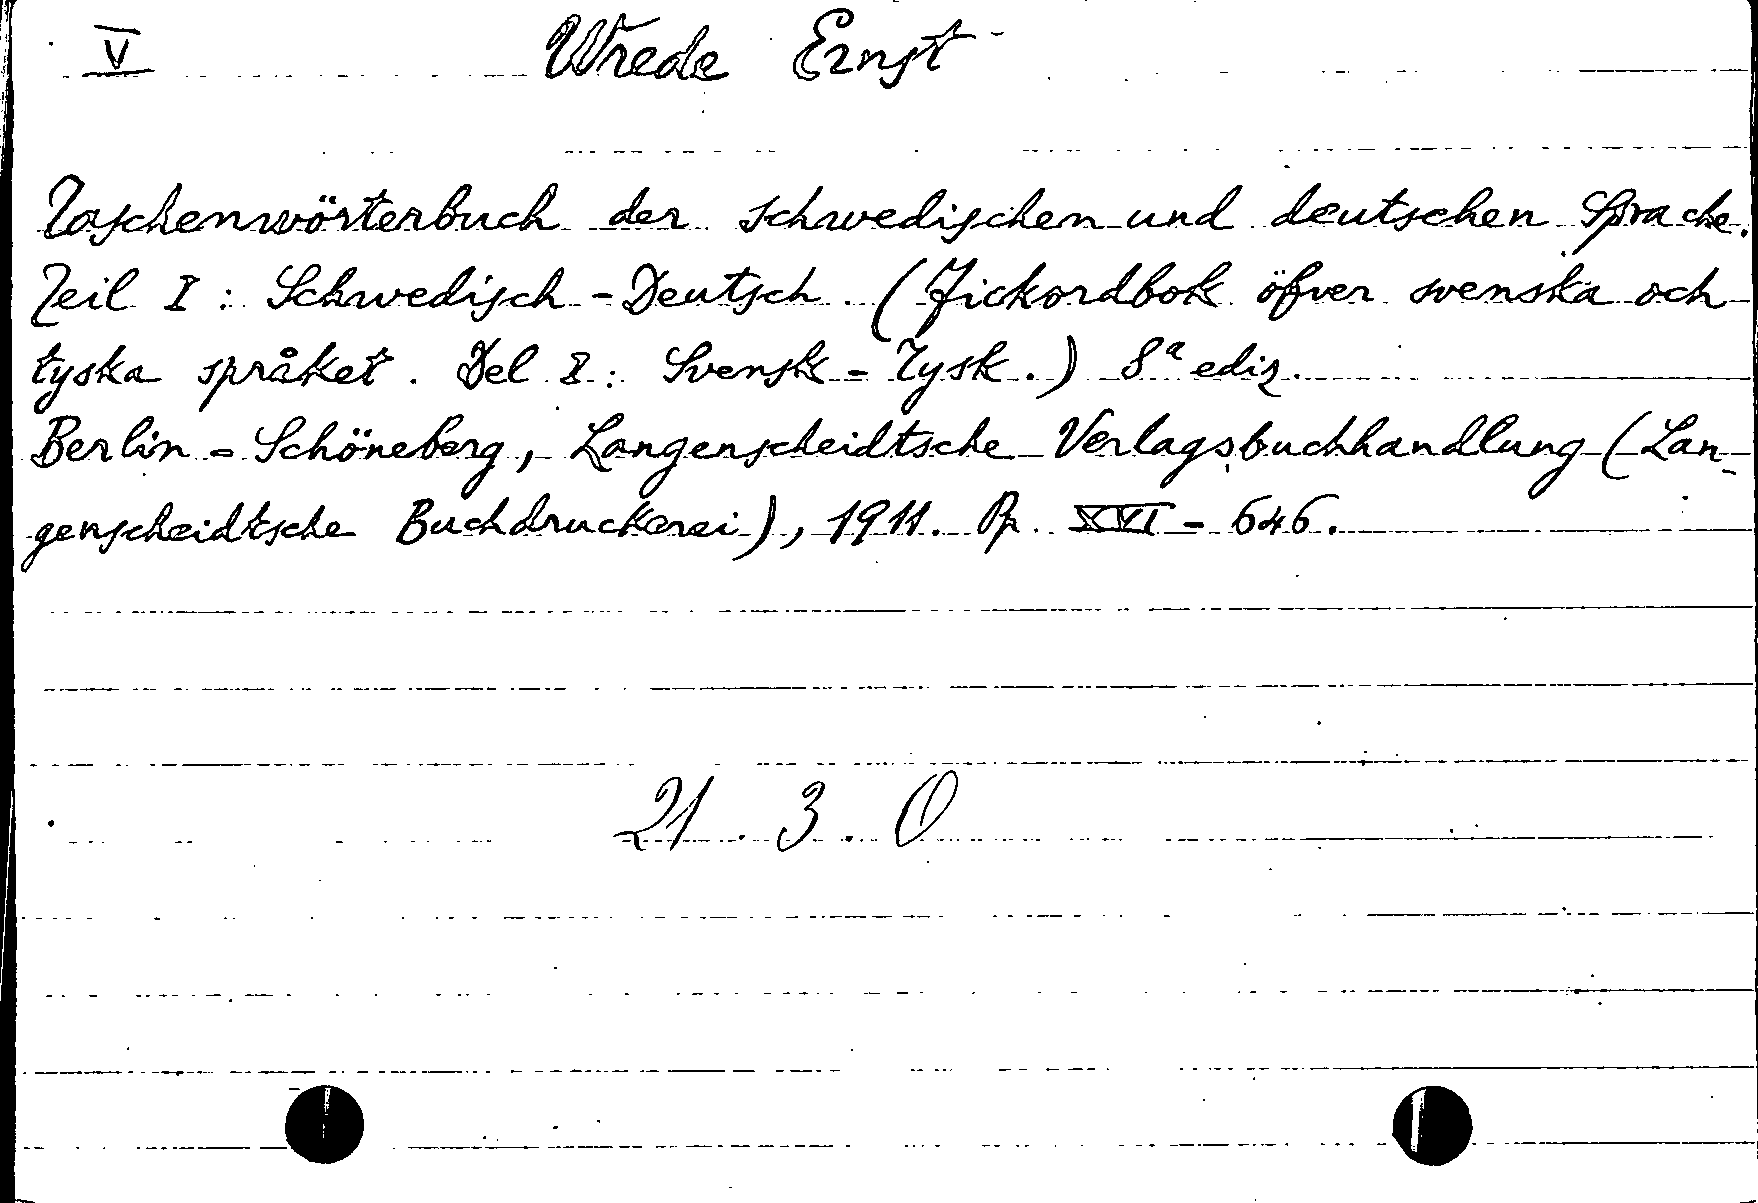 V
Wrede Ernst
Taschenwörterbuch der schwedischen und deutschen Sprache.
Teil I: Schwedisch-Deutsch. (Fickordbok öfver svenska och
tyska språket. Del I: Svensk-Tysk.) 8ª ediz.
Berlin-Schöneberg, Langenscheidtsche Verlagsbuchhandlung (Lan-
genscheidtsche Buchdruckerei), 1911. Pp. XVI-646.
21.3.0